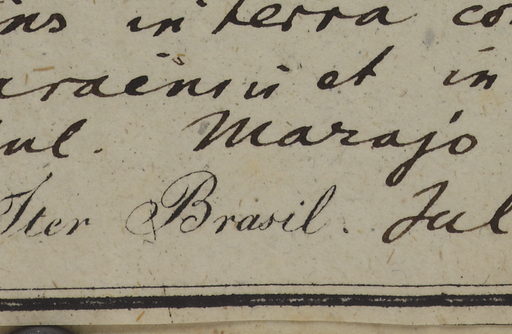 ins in terra co
araënsis et in
Jul. Marajo
Iter Brasil. Jul